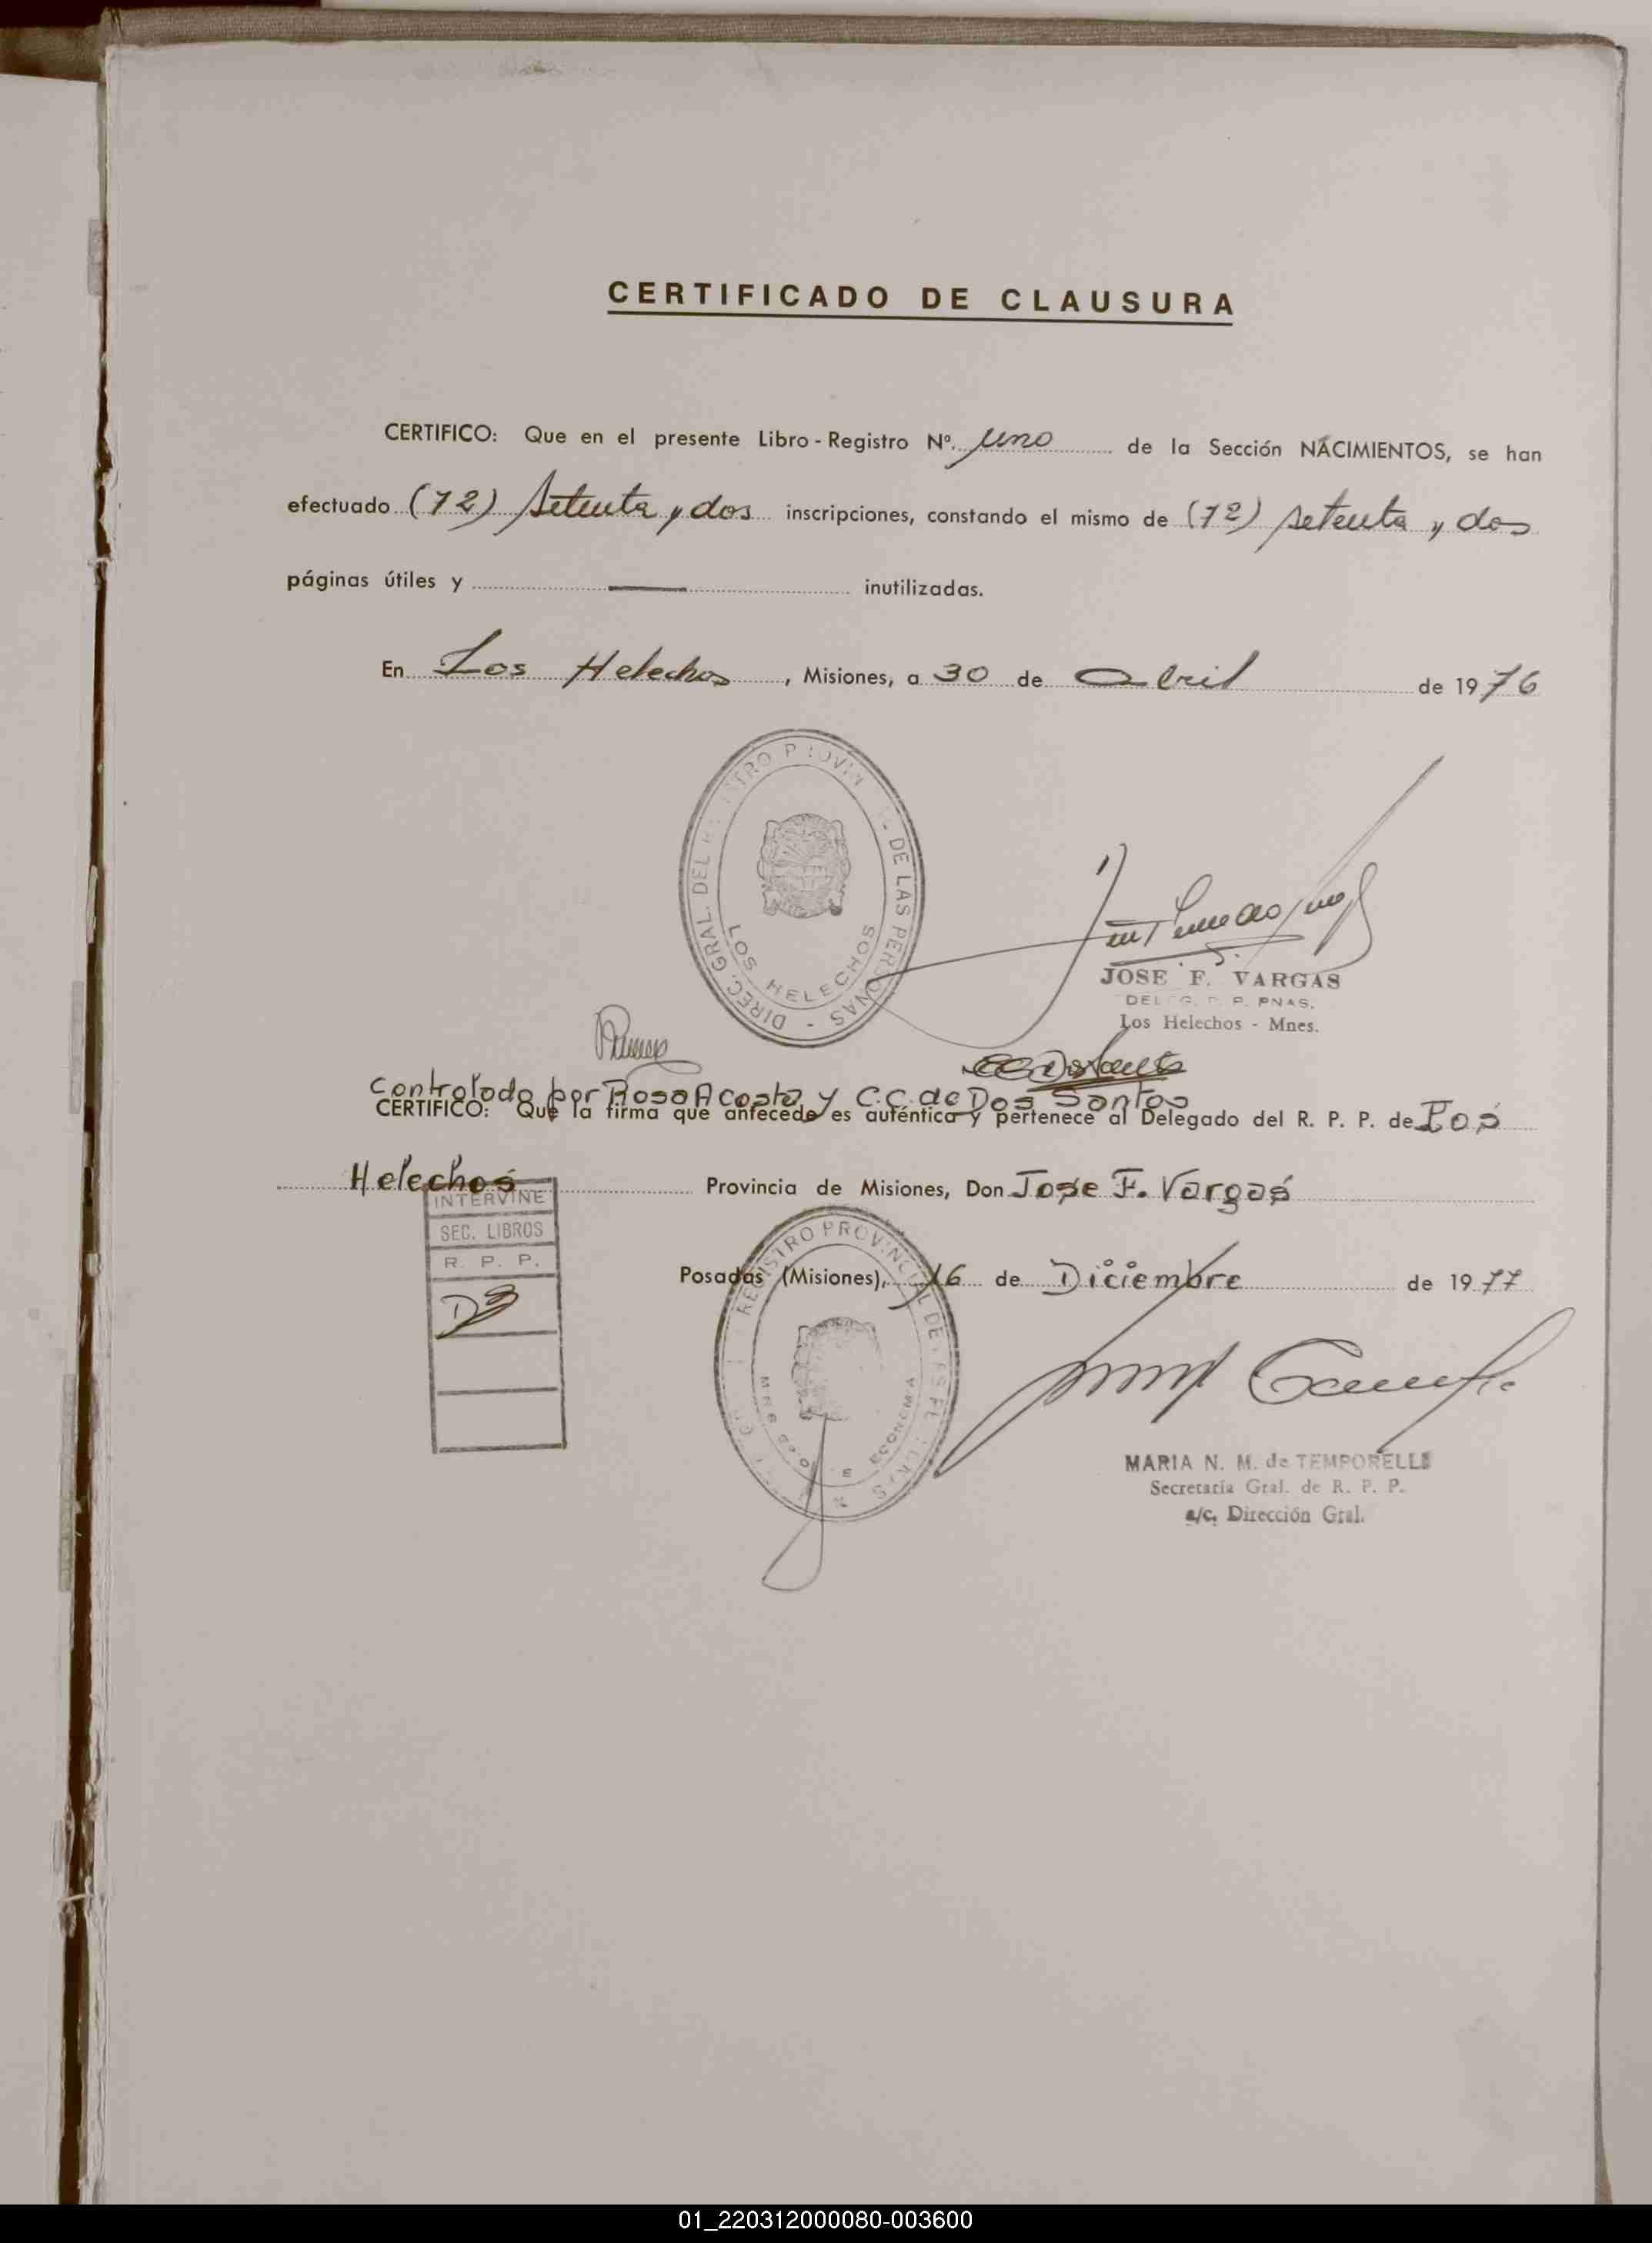 CERTIFICADO DE CLAUSURA
CERTIFICO: Que en el presente Libro - Registro Nº. uno de la Sección NACIMIENTOS, se han
efectuado (72) Setenta y dos inscripciones, constando el mismo de (72) setenta y dos
páginas útiles y — inutilizadas.
En Los Helechos, Misiones, a 30 de Abril de 1976
DIREC. GRAL. DEL REGISTRO PROVINCIAL DE LAS PERSONAS - LOS HELECHOS
JOSE F. VARGAS
P. PNAS.
Los Helechos - Mnes.
Controlado por Rosa Acosta y C.C. de Dos Santos
CERTIFICO: Que la firma que antecede es auténtica y pertenece al Delegado del R. P. P. de Los
Helechos Provincia de Misiones, Don Jose F. Vargas
INTERVINE
SEC. LIBROS
R. P. P.
Posadas (Misiones), 16 de Diciembre de 1977
REGISTRO PROVINCIAL DE
ECONOMIA
MARIA N. M. de TEMPORELLI
Secretaria Gral. de R. P. P.
a/c. Dirección Gral.
01_220312000080-003600